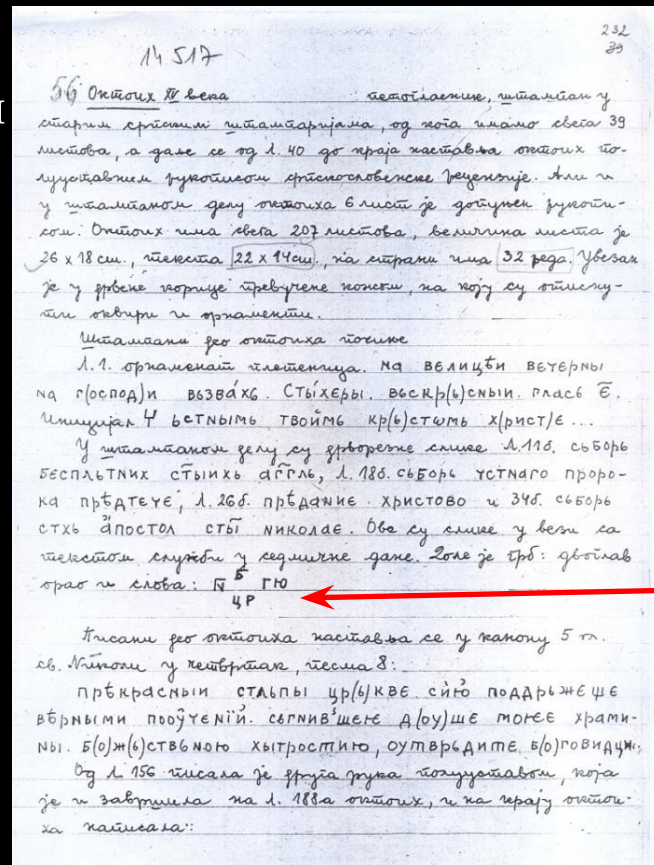 232
39
14 517
56 Октоих IV века петогласник, штампан у
старим српским штампаријама, од кога имамо свега 39
листова, а даље се од л. 40 до краја наставља октоих по-
лууставним рукописом српскословенске рецензије. Али и
у штампаном делу октоиха 6 лист је допуњен рукопи-
сом. Октоих има свега 207 листова, величина листа је
26 x 18 см., текста 22 x 14 см., на страни има 32 реда. Увезан
је у дрвене корице превучене кожом, на коју су отисну-
ти оквири и орнаменти.
Штампани део октоиха почиње
Л.1. орнаменат плетеница. на велицѣи вечерны
на г(оспод)и възва́хь. Сты́херы. въскр(ь)сныи. гласъ є҃.
Иницијал Ч ьстнымь твои́мь кр(ь)стѡмь х(рист)є ...
У штампаном делу су дрворезне слике л.11б. съборь
бесплътних сты̃ихь аг҃гль, л. 18б. съборь чстнаго проро-
ка прѣдтечє, л. 26б. прѣданиє христово и 34б. съборь
стхь апостол сты̃ николає. Ове су слике у вези са
текстом службе у седмичне дане. Доле је грб: двоглав
орао и слова: Б ГЮ
ЦР
Писани део октоиха наставља се у канону 5 гл.
св. Николи у четвртак, песма 8:
прѣкрасныи стлъпы цр(ь)квє сию поддрьжєщє
вѣрными пооучєнїи. съгнив'шєє д(оу)шє моєє храми-
ны. б(о)ж(ь)ствьною хытростию, оутврьдитє, б(о)говидци.
Од л. 156 писала је друга рука полууставом, која
је и завршила на л. 188а октоих, и на крају октои-
ха написала: